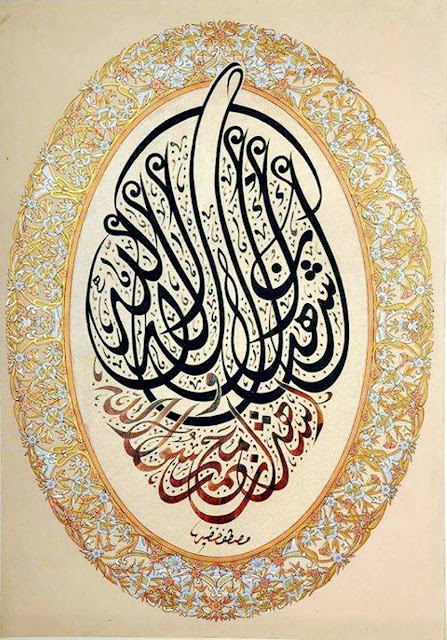 أشهد أن لا إله إلا الله
وأشهد أن محمدا رسول الله
مصطفى خضير